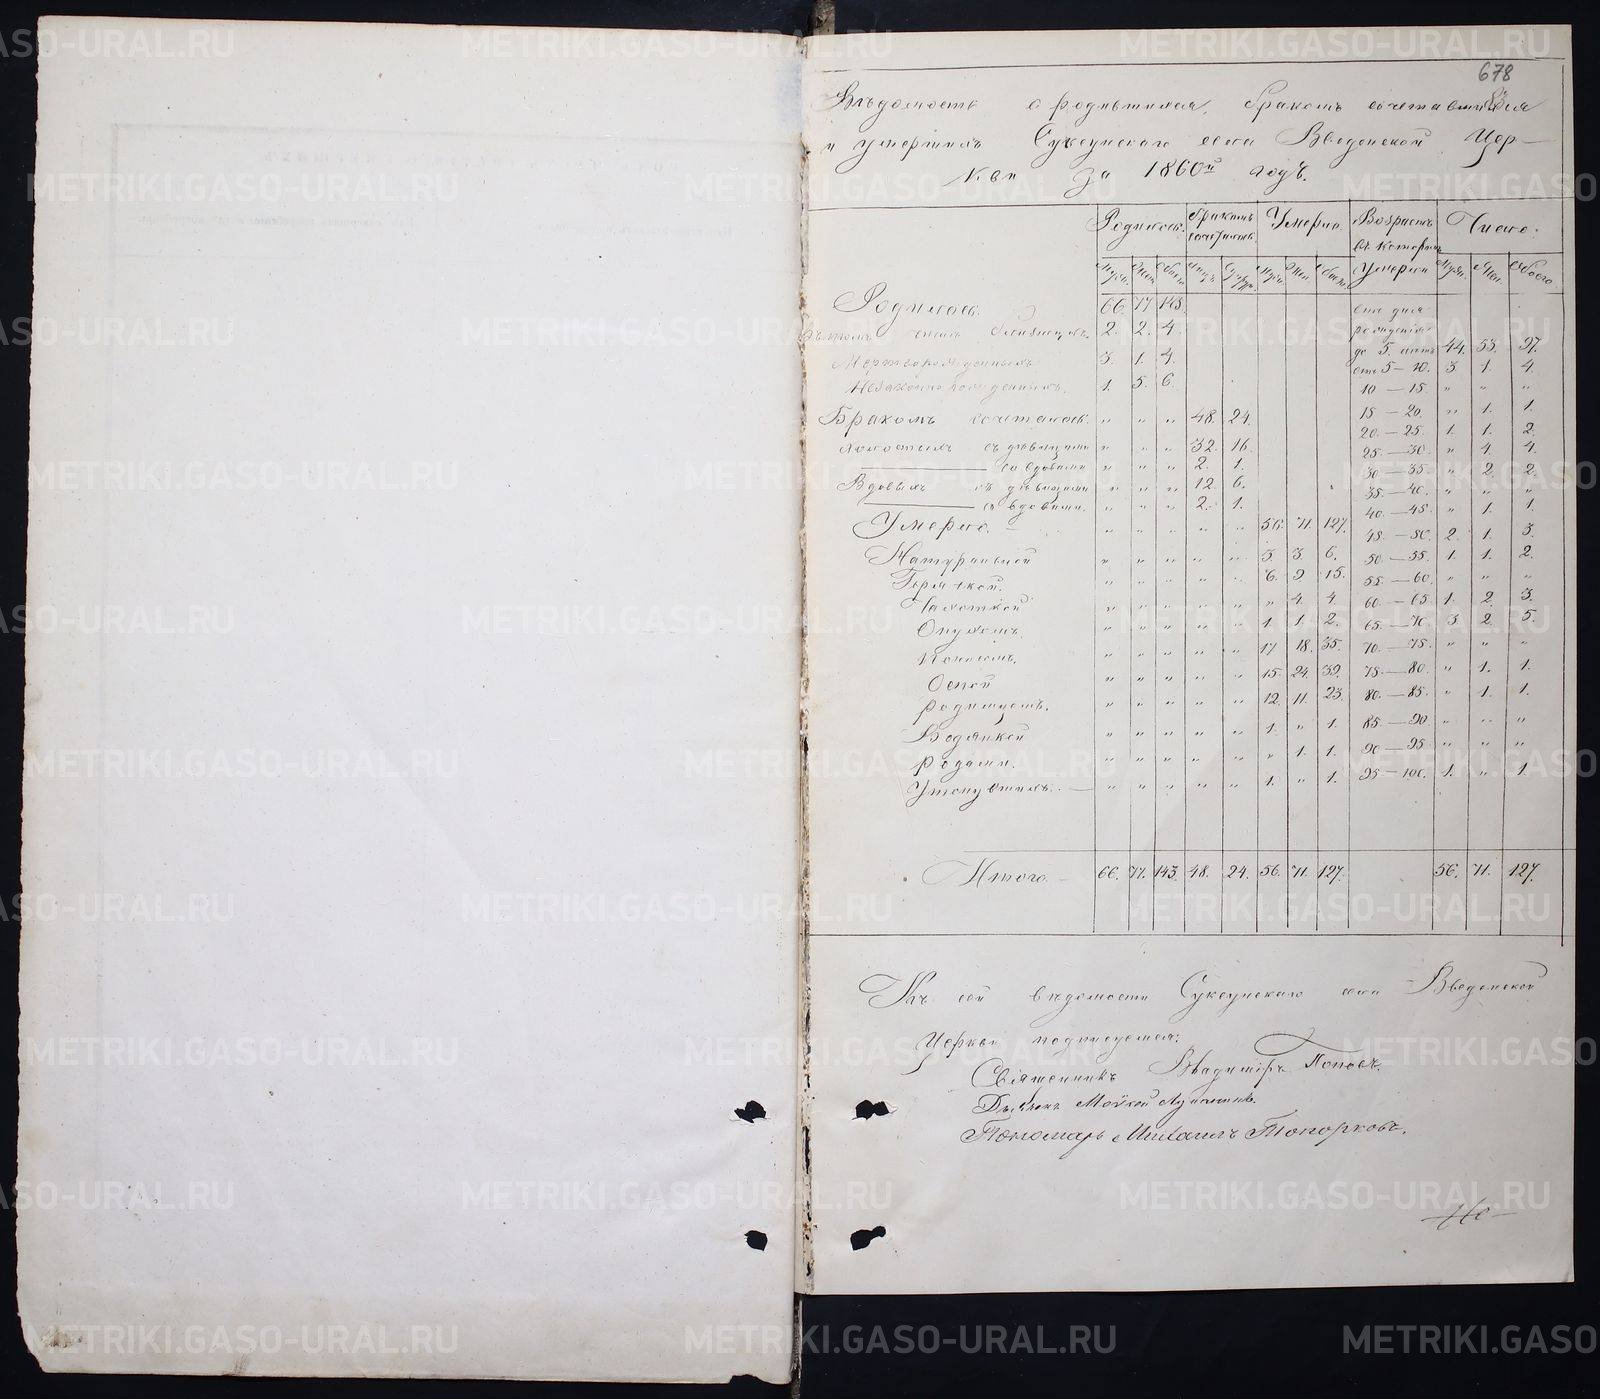 678
Вѣдомость о родившихся, бракомъ сочетавшихся
и умершихъ Суксунскаго села Введенской Цер-
кви за 1860й годъ.
Родилось. Бракомъ сочеталось. Умерло. Возрастъ въ которомъ умерли Число.
Муж. Жен. Обоего. Лицъ. Супр. Муж. Жен. Обоего. Муж. Жен. Обоего.
Родилось. 66. 77. 143. отъ дня рожденія
Въ томъ числѣ близнецовъ. 2. 2. 4. до 5. лѣтъ 44. 53. 97.
Мертворожденныхъ 3. 1. 4. отъ 5 — 10. 3. 1. 4.
Незаконнорожденныхъ. 1. 5. 6. 10 — 15. " " "
Бракомъ сочеталось. " " " 48. 24. 15 — 20. " 1. 1.
20. — 25. 1. 1. 2.
Холостыхъ съ дѣвицами " " " 32. 16. 25. — 30. " 4. 4.
со вдовами " " " 2. 1. 30 — 35. " 2. 2.
Вдовыхъ съ дѣвицами " " " 12. 6. 35. — 40. " " "
съ вдовами. " " " 2. 1. 40. — 45. " 1. 1.
Умерло. " " " " " 56. 71. 127. 45. — 50. 2. 1. 3.
Натуральной " " " " " 3. 3. 6. 50 — 55. 1. 1. 2.
Горячкой. " " " " " 6. 9. 15. 55. — 60. " " "
Чахоткой " " " " " " 4. 4. 60. — 65. 1. 2. 3.
Опухолью. " " " " " 1. 1. 2. 65. — 70. 3. 2. 5.
Поносомъ. " " " " " 17. 18. 35. 70. — 75. " " "
Оспой " " " " " 15. 24. 39. 75. — 80. " 1. 1.
Родимцемъ. " " " " " 12. 11. 23. 80. — 85. " 1. 1.
Водянкой " " " " " 1. " 1. 85. — 90. " " "
Родами. " " " " " " 1. 1. 90 — 95. " " "
Утонувшихъ. " " " " " 1. " 1. 95 — 100. 1. " 1.
Итого. 66. 77. 143. 48. 24. 56. 71. 127. 56. 71. 127.
Къ сей вѣдомости Суксунскаго села Введенской
Церкви подписуемся:
Священникъ Владимiръ Поповъ.
Дьяконъ Моисей
Пономарь Михаилъ Топорковъ.
METRIKI.GASO-URAL.RU